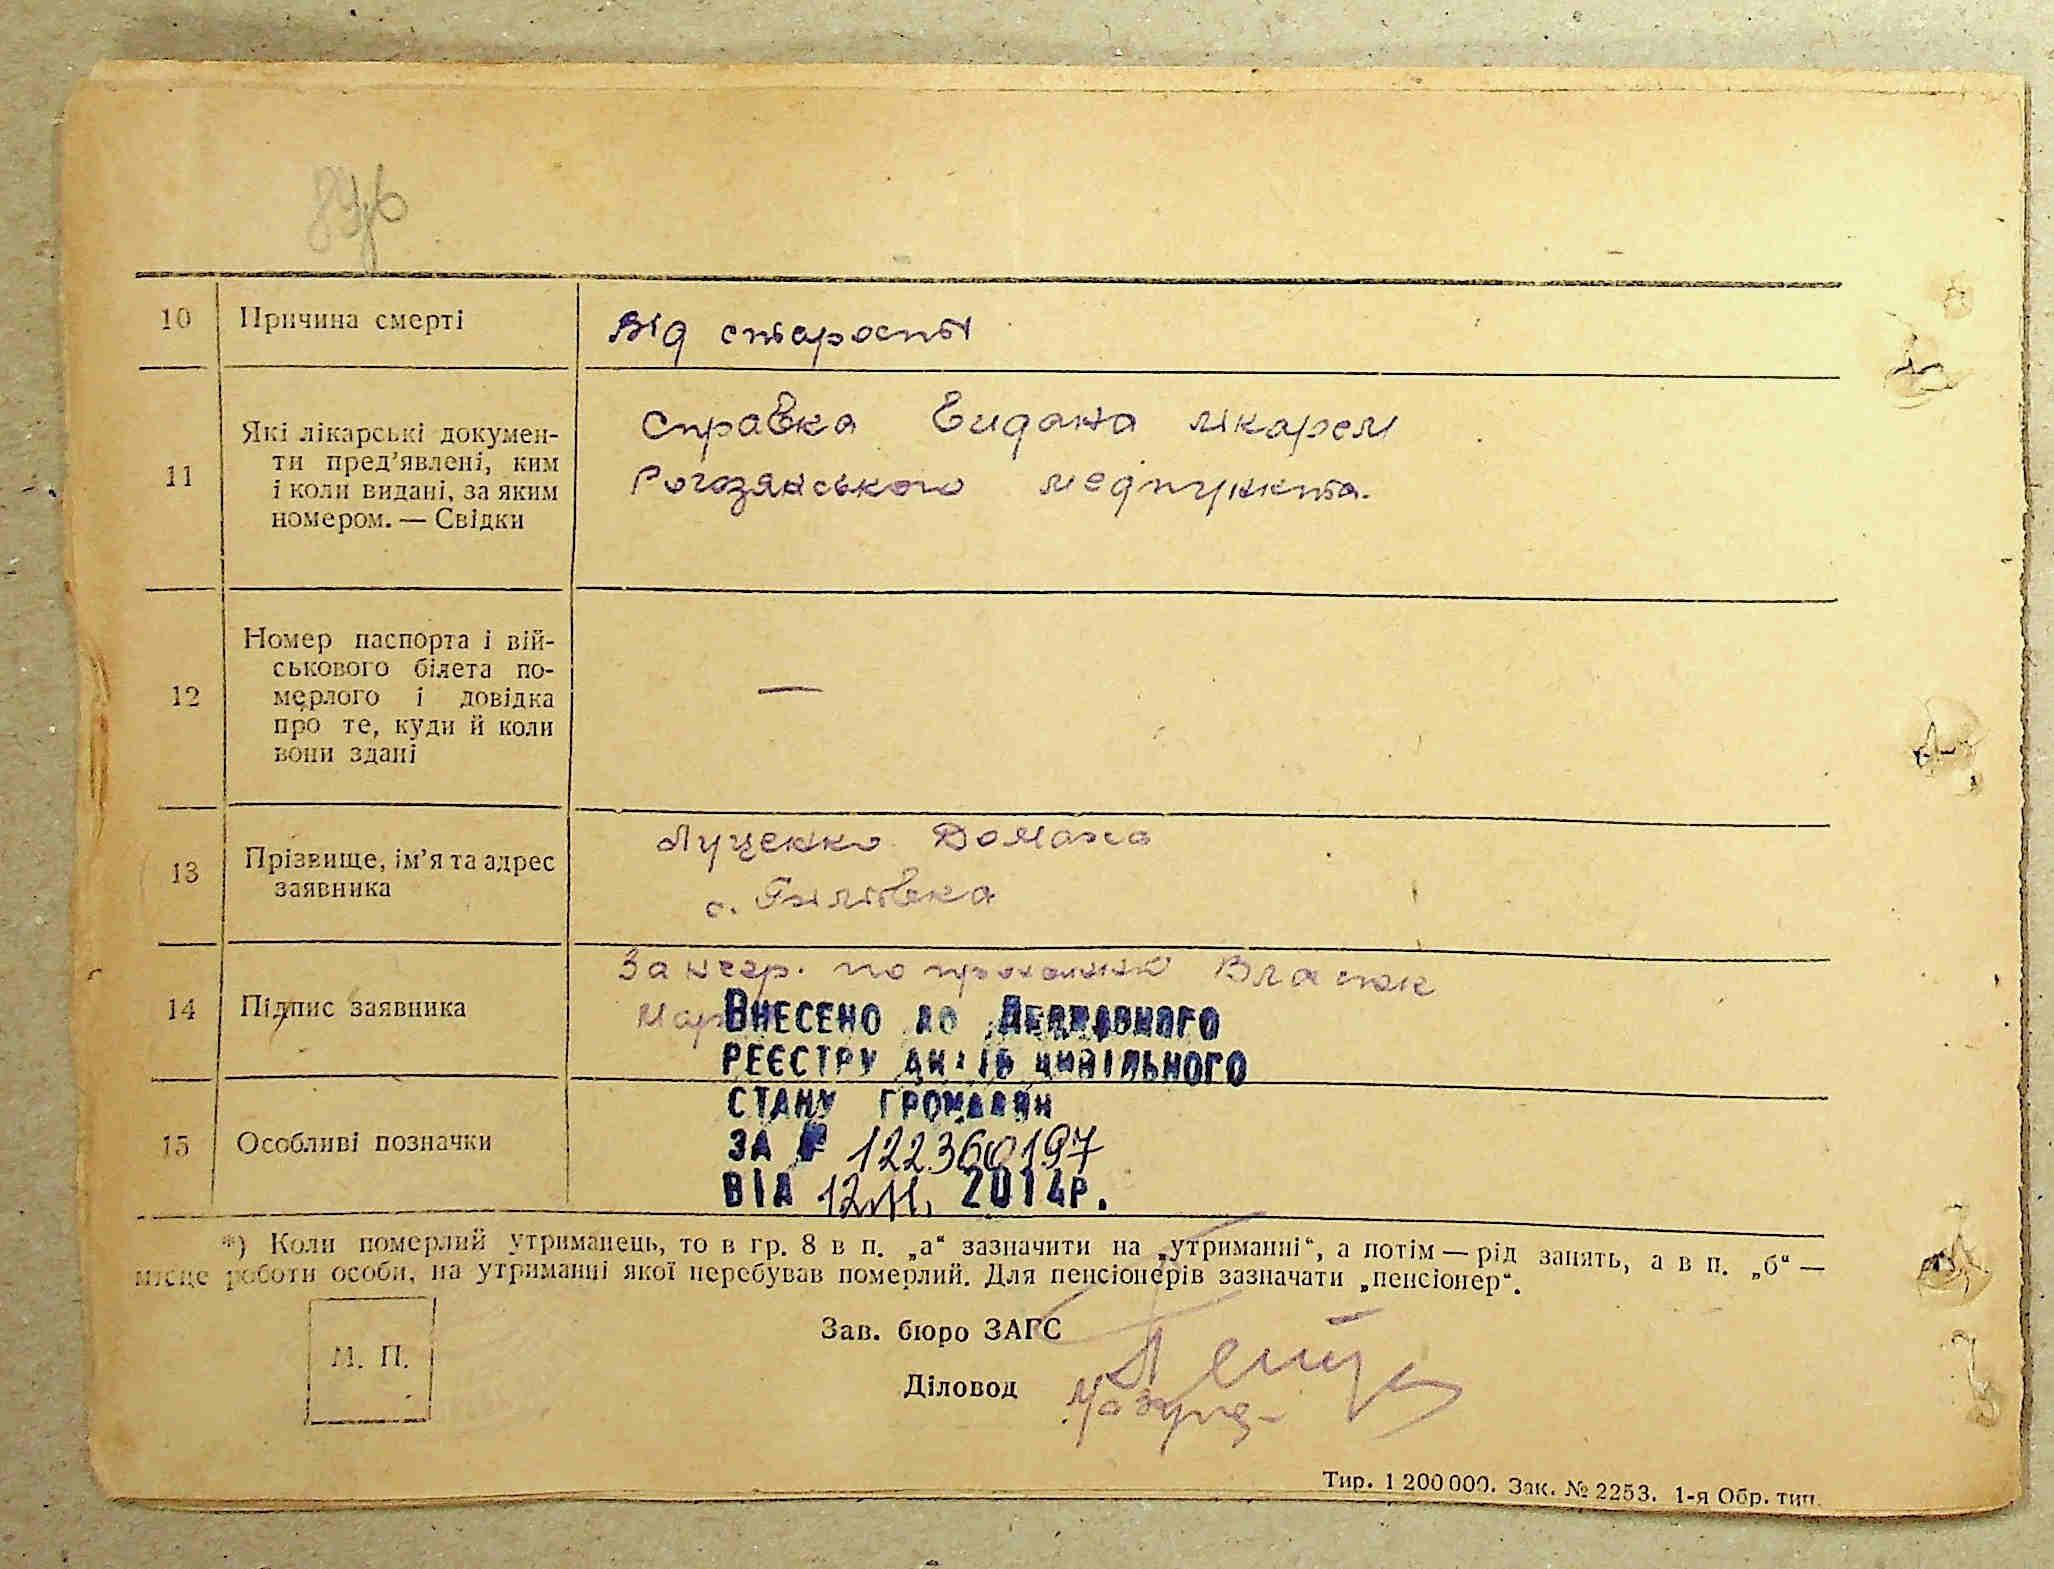 10 Причина смерті від старості
11 Які лікарські докумен-
ти пред'явлені, ким
і коли видані, за яким
номером. — Свідки
справка видана лікарем
Рогозянського медпункта.
12 Номер паспорта і вій-
ськового білета по-
мерлого і довідка
про те, куди й коли
вони здані
—
13 Прізвище, ім'я та адрес
заявника
Луценко Домаха
с. Гнилівка
14 Підпис заявника
За негр. по проханню Властюк
Мар
ВНЕСЕНО ДО ДЕРЖАВНОГО
РЕЄСТРУ АКТІВ ЦИВІЛЬНОГО
СТАНУ ГРОМАДЯН
15 Особливі позначки
ЗА № 122360197
ВІД 12.11. 2014Р.
*) Коли померлий утриманець, то в гр. 8 в п. „а“ зазначити на „утриманні“, а потім — рід занять, а в п. „б“ —
місце роботи особи, на утриманні якої перебував померлий. Для пенсіонерів зазначати „пенсіонер“.
М. П.
Зав. бюро ЗАГС
Діловод
Тир. 1 200 000. Зак. № 2253. 1-я Обр. тип.